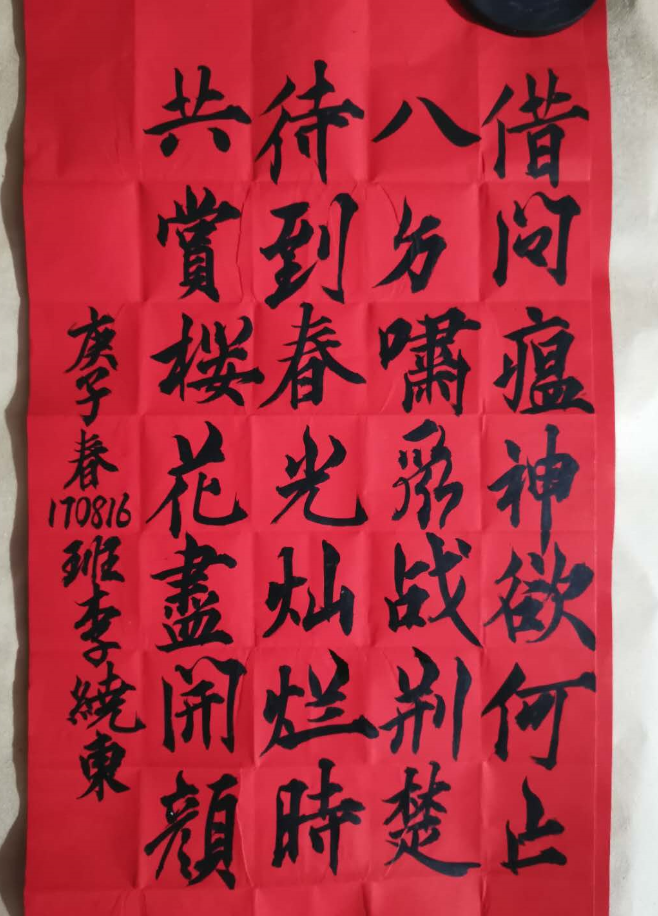 借问瘟神欲何止
八方嘯聚战荆楚
待到春光灿烂時
共賞桜花盡開顔
庚子春170816班李繞東